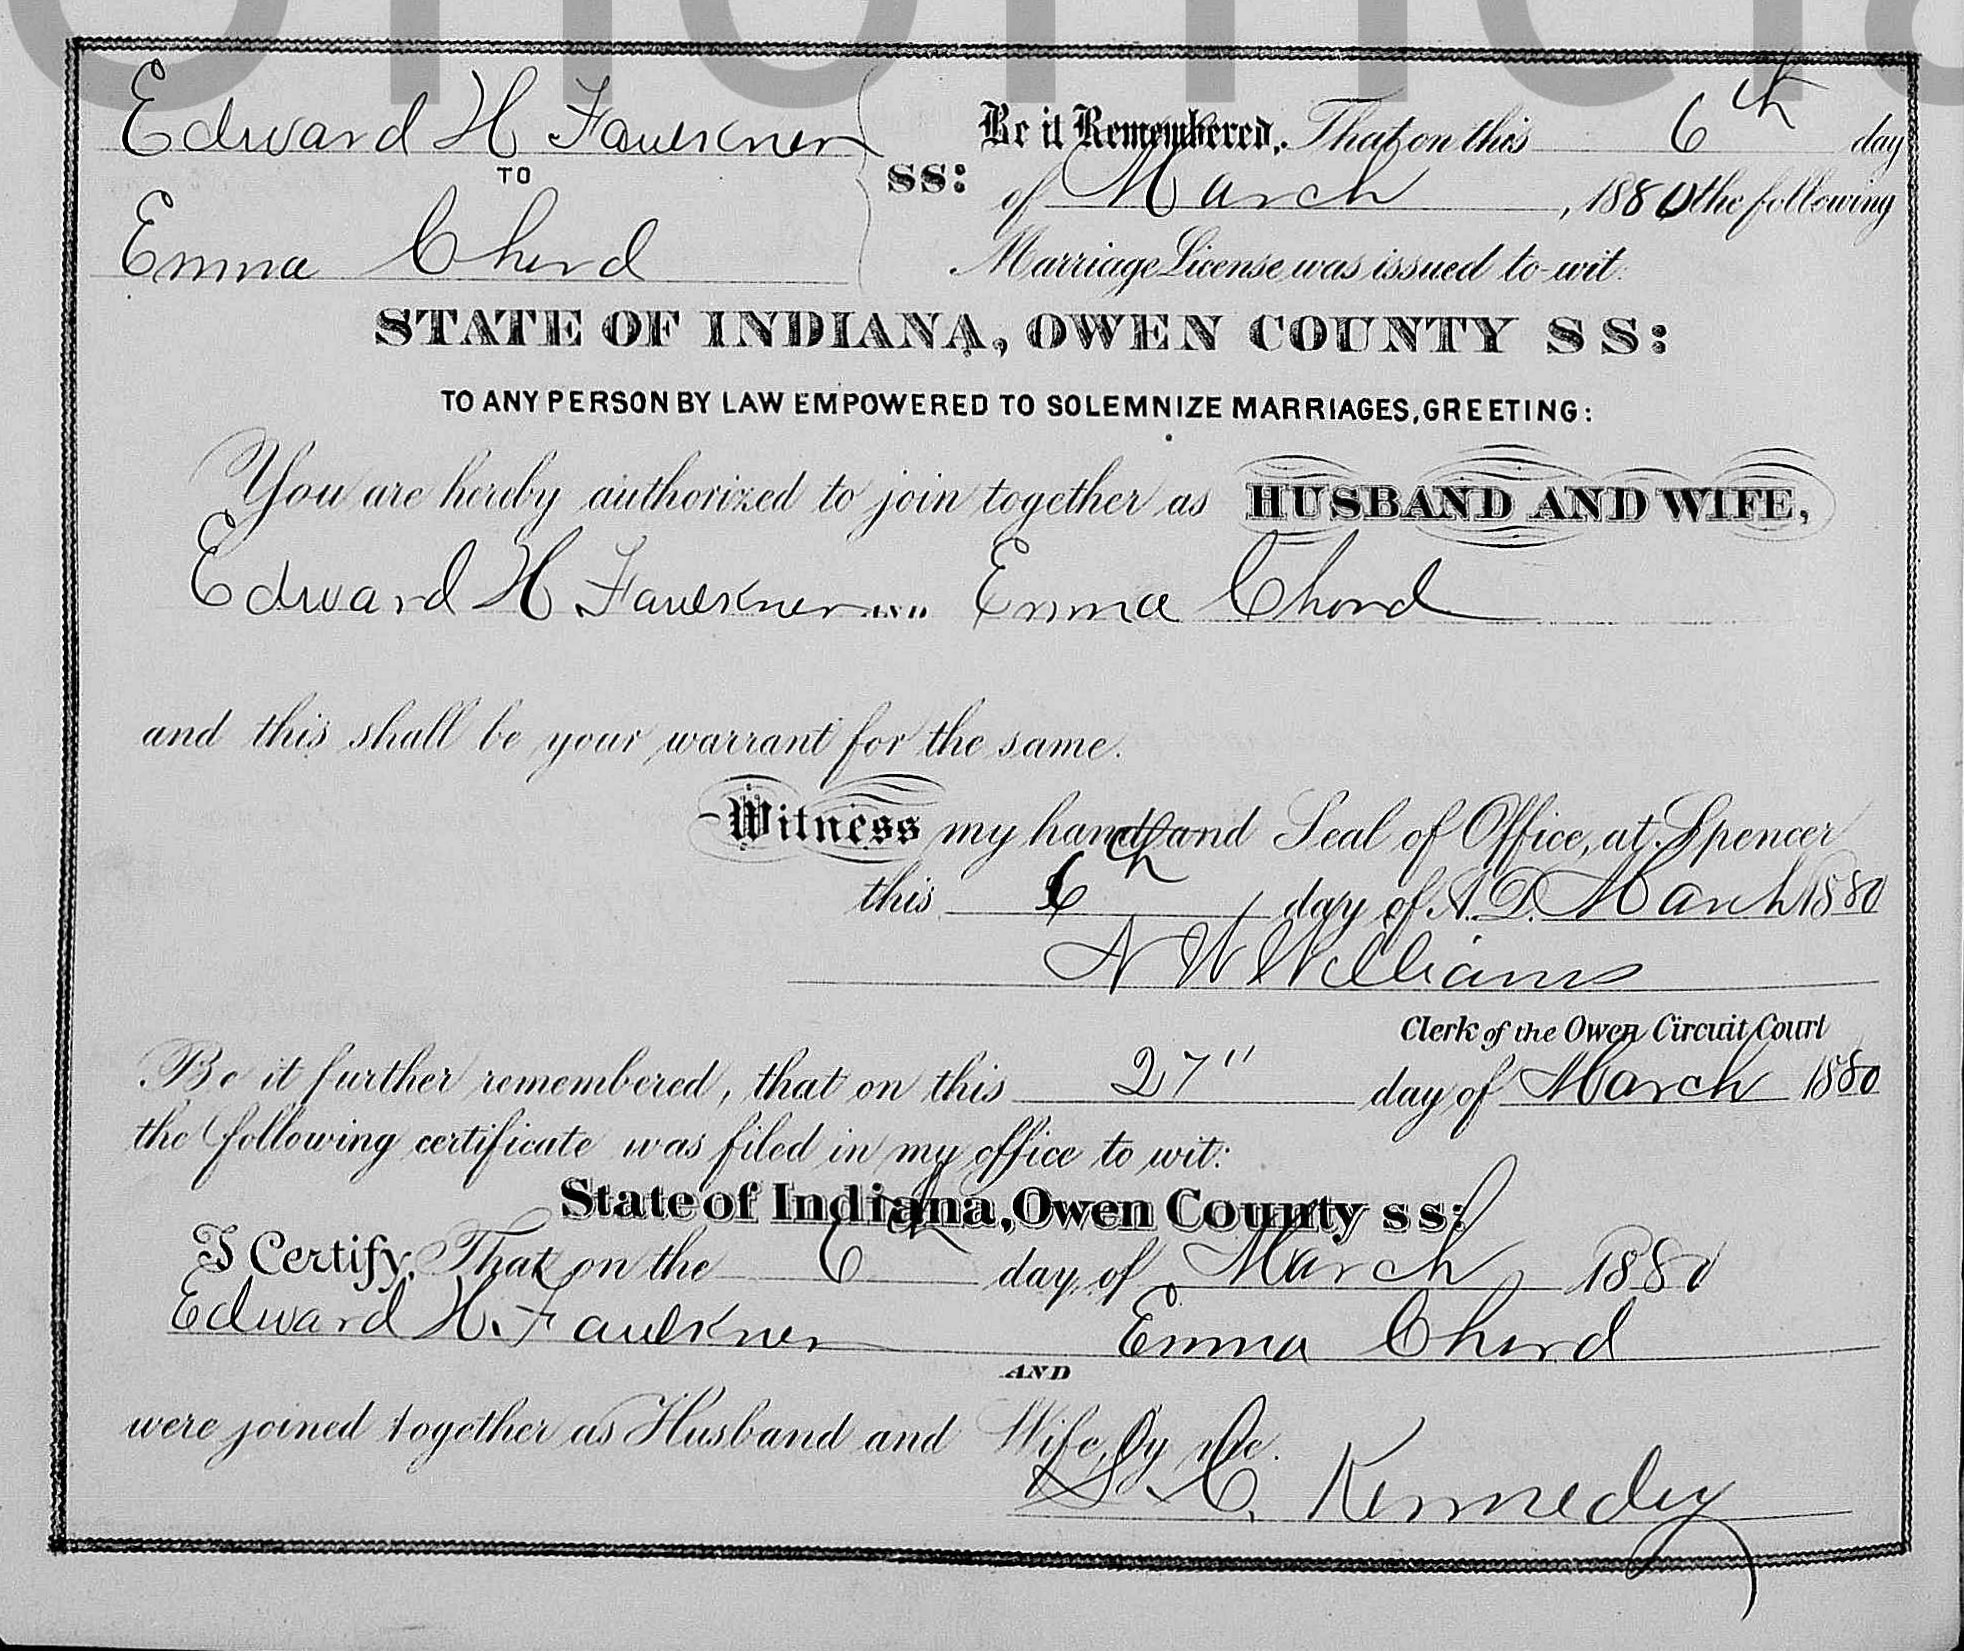 Edward H Faulkner
TO
Emma Chord
SS:
Be it Remembered, That on this 6th day
of March, 1880 the following
Marriage License was issued to wit:
STATE OF INDIANA, OWEN COUNTY SS:
TO ANY PERSON BY LAW EMPOWERED TO SOLEMNIZE MARRIAGES, GREETING:
You are hereby authorized to join together as HUSBAND AND WIFE,
Edward H Faulkner AND Emma Chord
and this shall be your warrant for the same.
Witness my hand and Seal of Office, at Spencer
this 6th day of A.D. March 1880
N W Williams
Clerk of the Owen Circuit Court
Be it further remembered, that on this 27" day of March 1880
the following certificate was filed in my office to wit:
State of Indiana, Owen County ss:
I Certify, That on the 6th day of March 1880
Edward H. Faulkner Emma Chord
AND
were joined together as Husband and Wife, by me.
S. C. Kennedy